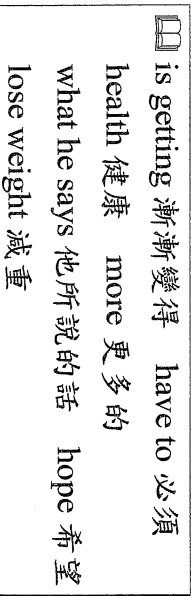 is getting 漸漸變得 have to 必須
health 健康 more 更多的
what he says 他所說的話 hope 希望
lose weight 減重